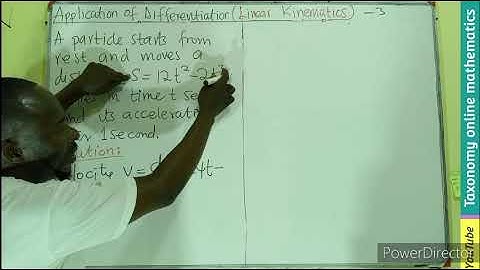 Application of Differentiation (Linear Kinematics) -3
A particle starts from
rest and moves a
S = 12t² - 2t³
in time t
its acceleration
1 second.
V =
Taxonomy online mathematics
YouTube
PowerDirector